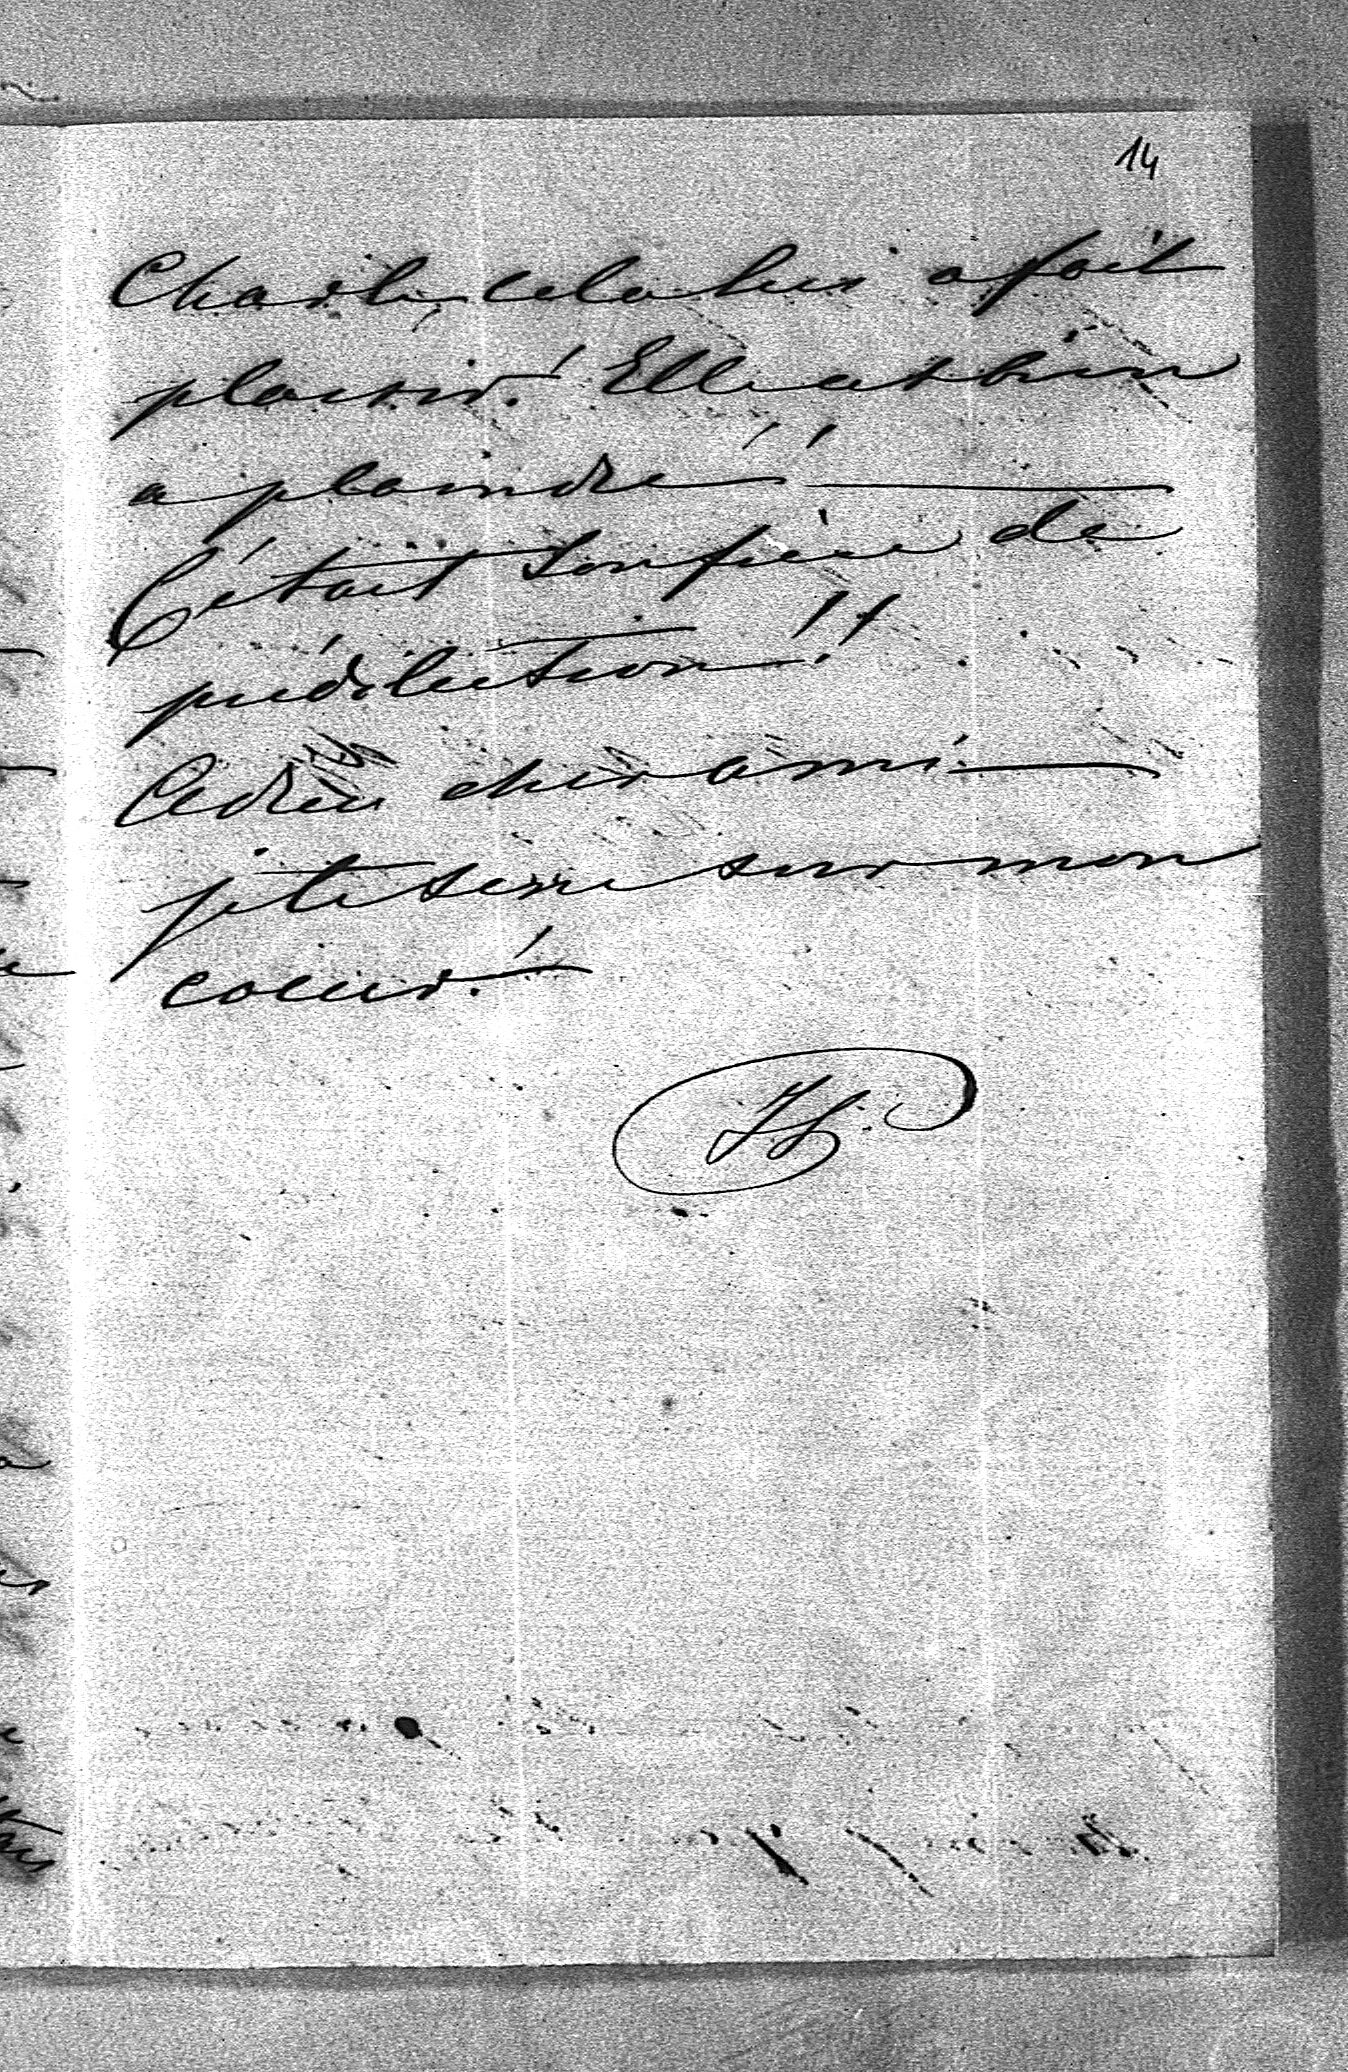 14
Charle cela lui a fait
plaisir! Elle est bien
a plaindre!!
C'était son frère de
prédilection!!
Adieu cher ami
je te serre sur mon
coeur!